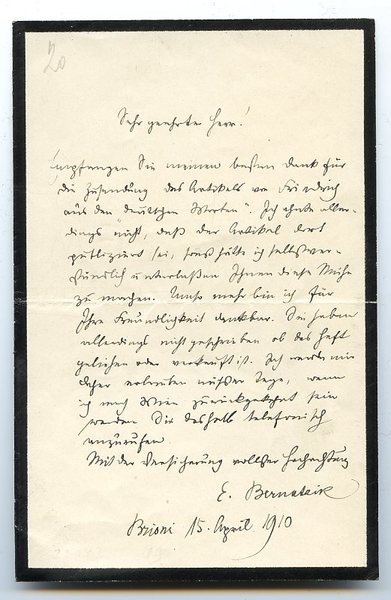 20
Sehr geehrter Herr!
Empfangen Sie meinen besten Dank für
die Zusendung des Artikels von Friedrich
aus den "deutschen Worten". Ich ahnte aller-
dings nicht, daß der Artikel dort
publiziert sei, sonst hätte ich selbstver-
ständlich unterlaßen Ihnen diese Mühe
zu machen. Umso mehr bin ich für
Ihre Freundlichkeit dankbar. Sie haben
allerdings nicht geschrieben ob das Heft
geliehen oder verkauft ist. Ich werde mir
daher erlauben nächster Tage, wenn
ich nach Wien zurückgekehrt sein
werde Sie deshalb telefonisch
anzurufen.
Mit der Versicherung vollster Hochachtung
E. Bernatzik
Brioni 15. April 1910